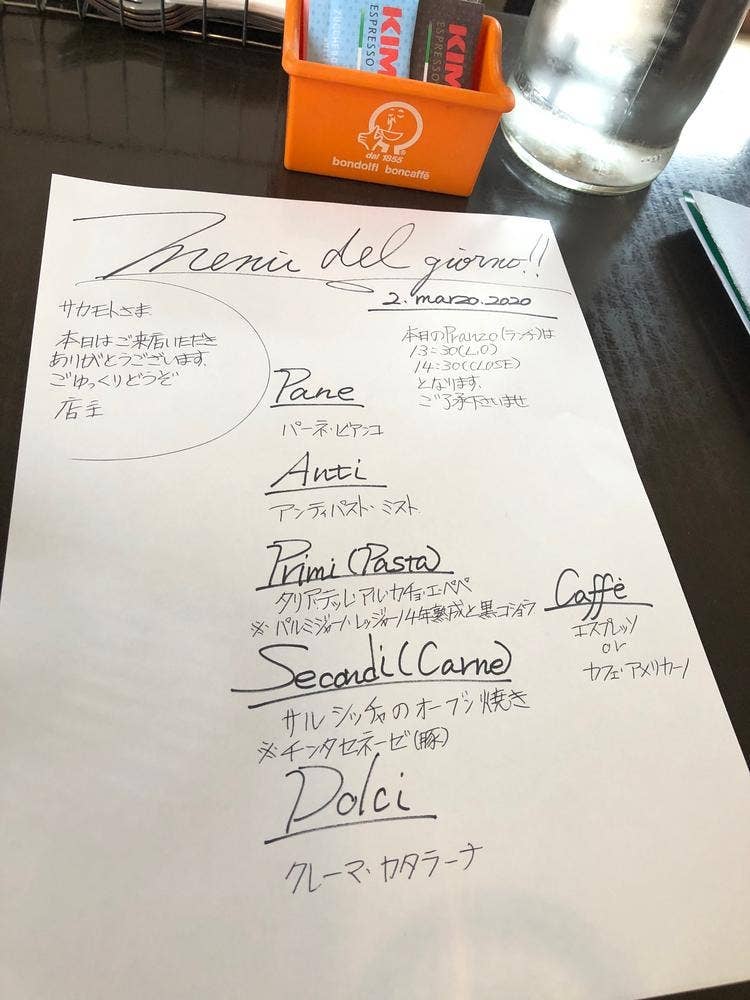 KIM
ESPRESSO
KIM
ESPRESSO
dal 1855
bondolfi boncaffē
Menù del giorno!!
2. marzo. 2020
サカモトさま
本日はご来店いただき
ありがとうございます。
ごゆっくりどうぞ
店主
本日のPranzo(ランチ)は
13:30(L.O)
14:30(CLOSE)
となります。
ご了承下さいませ
Pane
パーネ・ビアンコ
Anti
アンティパスト・ミスト
Primi (Pasta)
タリアテッレ・アル・カチョ・エ・ペペ
※ パルミジャーノ・レッジャーノ4年熟成と黒コショウ
Caffè
エスプレッソ
or
カフェ・アメリカーノ
Secondi (Carne)
サルシッチャのオーブン焼き
※チンタセネーゼ(豚)
Dolci
クレーマ・カタラーナ